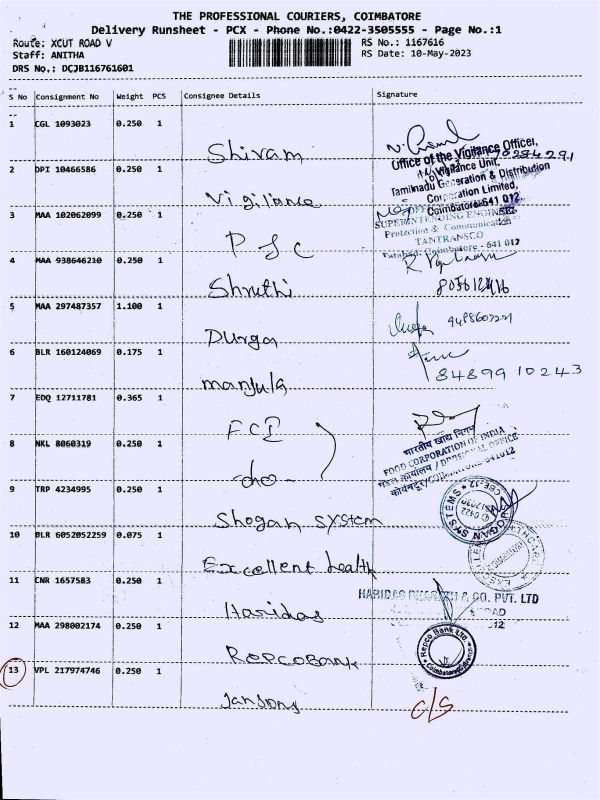 THE PROFESSIONAL COURIERS, COIMBATORE
Delivery Runsheet - PCX - Phone No.:0422-3505555 - Page No.:1
Route: XCUT ROAD V
RS No.: 1167616
Staff: ANITHA
RS Date: 10-May-2023
DRS No.: DCJB116761601
S No Consignment No Weight PCS Consignee Details Signature
1 CGL 1093023 0.250 1
Shivam
Office of the Vigilance Officer,
2 DPI 10466586 0.250 1
Vigilance Unit,
Tamilnadu Generation & Distribution
Vigilance
Corporation Limited,
Coimbatore-641 012
3 MAA 102062099 0.250 1
SUPERINTENDING ENGINEER
Protection & Communication
TANTRANSCO
P & C
Tatabad, Coimbatore - 641 012
4 MAA 938646210 0.250 1
Shruthi
5 MAA 297487357 1.100 1
Durga
6 BLR 160124069 0.175 1
84899 10243
manjula
7 EDQ 12711781 0.365 1
FCI
भारतीय खाद्य निगम
FOOD CORPORATION OF INDIA
8 NKL 8060319 0.250 1
मंडल कार्यालय / DIVISIONAL OFFICE
-do-
9 TRP 4234995 0.250 1
Shogan System
10 BLR 6052052259 0.075 1
Excellent health
11 CNR 1657583 0.250 1
Haridas
12 MAA 298002174 0.250 1
Repco Bank Ltd
REPCOBANK
13 VPL 217974746 0.250 1
C/S